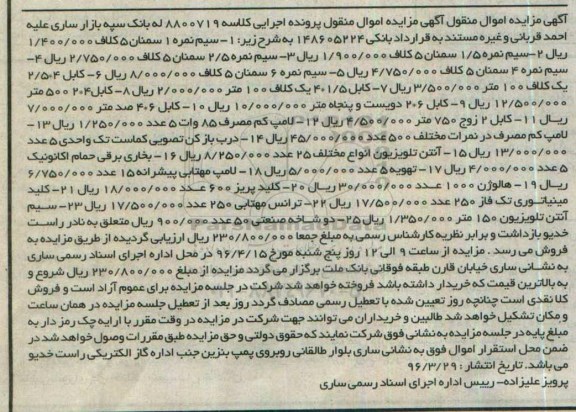 آگهی مزایده اموال منقول آگهی مزایده اموال منقول پرونده اجرایی کلاسه ۸۸۰۰۷۱۹ له بانک سپه بازار ساری علیه
احمد قربانی و غیره مستند به قرارداد بانکی ۱۴۸۶۰۵۲۲۴ به شرح زیر: ۱- سیم نمره ۱ سمنان ۵ کلاف ۱/۴۰۰/۰۰۰
ریال ۲- سیم نمره ۱/۵ سمنان ۵ کلاف ۱/۹۰۰/۰۰۰ ریال ۳- سیم نمره ۲/۵ سمنان ۵ کلاف ۲/۷۵۰/۰۰۰ ریال ۴-
سیم نمره ۴ سمنان ۵ کلاف ۴/۷۵۰/۰۰۰ ریال ۵- سیم نمره ۶ سمنان ۵ کلاف ۸/۰۰۰/۰۰۰ ریال ۶- کابل ۲/۵*۴
یک کلاف ۱۰۰ متر ۳/۵۰۰/۰۰۰ ریال ۷- کابل ۱/۵*۴ یک کلاف ۱۰۰ متر ۲/۰۰۰/۰۰۰ ریال ۸- کابل ۴*۲ ۵۰۰ متر
۱۲/۵۰۰/۰۰۰ ریال ۹- کابل ۶*۲ دویست و پنجاه متر ۱۰/۰۰۰/۰۰۰ ریال ۱۰- کابل ۶*۴ صد متر ۷/۰۰۰/۰۰۰
ریال ۱۱- کابل ۲ زوج ۷۵۰ متر ۴/۵۰۰/۰۰۰ ریال ۱۲- لامپ کم مصرف ۸۵ وات ۵ عدد ۱/۲۵۰/۰۰۰ ریال ۱۳-
لامپ کم مصرف در نمرات مختلف ۵۰۰ عدد ۴۵/۰۰۰/۰۰۰ ریال ۱۴- درب باز کن تصویری کماست تک واحدی ۵ عدد
۱۳/۰۰۰/۰۰۰ ریال ۱۵- آنتن تلویزیون انواع مختلف ۲۵ عدد ۸/۲۵۰/۰۰۰ ریال ۱۶- بخاری برقی حمام اکانونیک
۵ عدد ۴/۰۰۰/۰۰۰ ریال ۱۷- تهویه ۵ عدد ۵/۰۰۰/۰۰۰ ریال ۱۸- لامپ مهتابی پیشرانه ۱۵ عدد ۶/۷۵۰/۰۰۰
ریال ۱۹- هالوژن ۱۰۰۰ عدد ۳۰/۰۰۰/۰۰۰ ریال ۲۰- کلید پریز ۶۰۰ عدد ۱۸/۰۰۰/۰۰۰ ریال ۲۱- کلید
مینیاتوری تک فاز ۲۵۰ عدد ۱۷/۵۰۰/۰۰۰ ریال ۲۲- ترانس مهتابی ۲۵۰ عدد ۱۷/۵۰۰/۰۰۰ ریال ۲۳- سیم
آنتن تلویزیون ۱۵۰ متر ۱/۳۵۰/۰۰۰ ریال ۲۵- دو شاخه صنعتی ۵۰ عدد ۹۰۰/۰۰۰ ریال متعلق به نادر راست
خدیو بازداشت و برابر نظریه کارشناس رسمی به مبلغ جمعا ۲۳۰/۸۰۰/۰۰۰ ریال ارزیابی گردیده از طریق مزایده به
فروش می رسد . مزایده از ساعت ۹ الی ۱۲ روز پنج شنبه مورخ ۹۶/۴/۱۵ در محل اداره اجرای اسناد رسمی ساری
به نشانی ساری خیابان قارن طبقه فوقانی بانک ملت برگزار می گردد مزایده از مبلغ ۲۳۰/۸۰۰/۰۰۰ ریال شروع و
به بالاترین قیمت که خریدار داشته باشد فروخته خواهد شد شرکت در جلسه مزایده برای عموم آزاد است و فروش
کلا نقدی است چنانچه روز تعیین شده با تعطیل رسمی مصادف گردد روز بعد از تعطیل جلسه مزایده در همان ساعت
و مکان تشکیل خواهد شد طالبین و خریداران می توانند جهت شرکت در مزایده در وقت مقرر با ارایه چک رمز دار به
مبلغ پایه در جلسه مزایده به نشانی فوق شرکت نمایند که حقوق دولتی و حق مزایده طبق مقررات وصول خواهد شد در
ضمن محل استقرار اموال فوق به نشانی ساری بلوار طالقانی روبروی پمپ بنزین جنب اداره گاز الکتریکی راست خدیو
می باشد. تاریخ انتشار : ۹۶/۳/۲۹
پرویز علیزاده- رییس اداره اجرای اسناد رسمی ساری